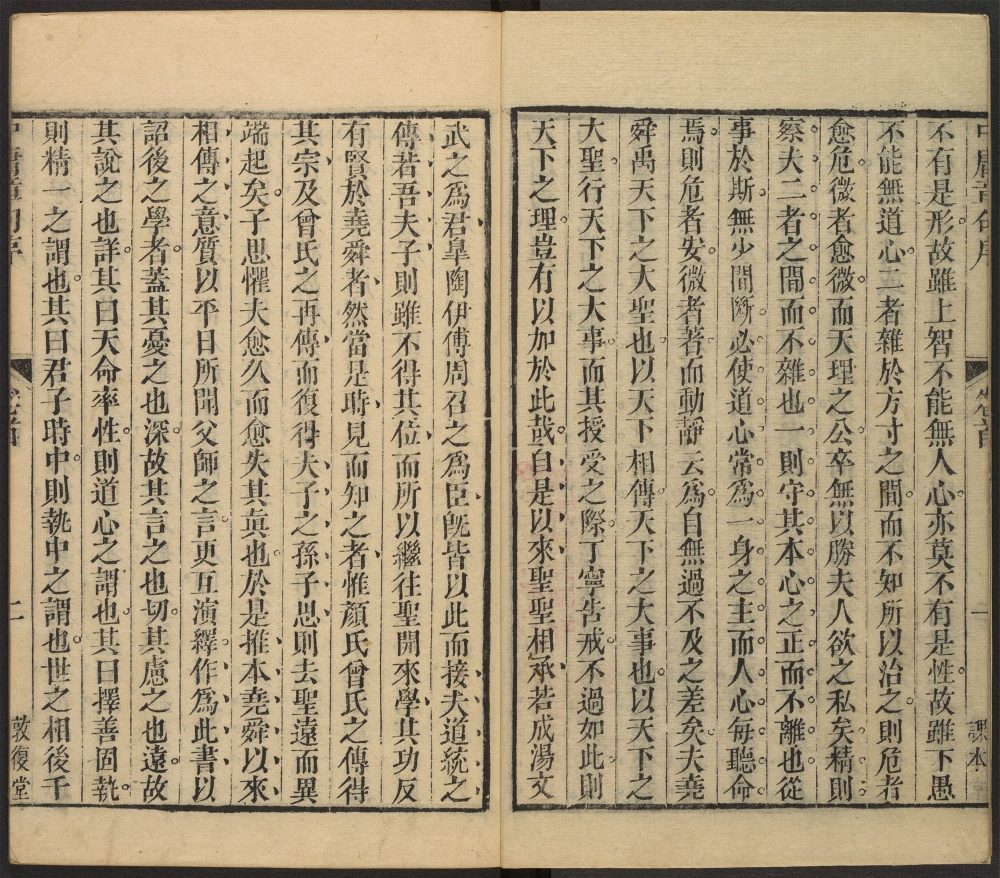 中庸章句序
卷首
一
課本
不有是形故雖上智不能無人心亦莫不有是性故雖下愚
不能無道心二者雜於方寸之間而不知所以治之則危者
愈危微者愈微而天理之公卒無以勝夫人欲之私矣精則
察夫二者之間而不雜也一則守其本心之正而不離也從
事於斯無少間斷必使道心常爲一身之主而人心每聽命
焉則危者安微者著而動靜云爲自無過不及之差矣夫堯
舜禹天下之大聖也以天下相傳天下之大事也以天下之
大聖行天下之大事而其授受之際丁寧告戒不過如此則
天下之理豈有以加於此哉自是以來聖聖相承若成湯文
武之爲君皐陶伊傅周召之爲臣旣皆以此而接夫道統之
傳若吾夫子則雖不得其位而所以繼往聖開來學其功反
有賢於堯舜者然當是時見而知之者惟顏氏曾氏之傳得
其宗及曾氏之再傳而復得夫子之孫子思則去聖遠而異
端起矣子思懼夫愈久而愈失其眞也於是推本堯舜以來
相傳之意質以平日所聞父師之言更互演繹作爲此書以
詔後之學者蓋其憂之也深故其言之也切其慮之也遠故
其說之也詳其曰天命率性則道心之謂也其曰擇善固執
則精一之謂也其曰君子時中則執中之謂也世之相後千
中庸章句序
卷首
二
敦復堂